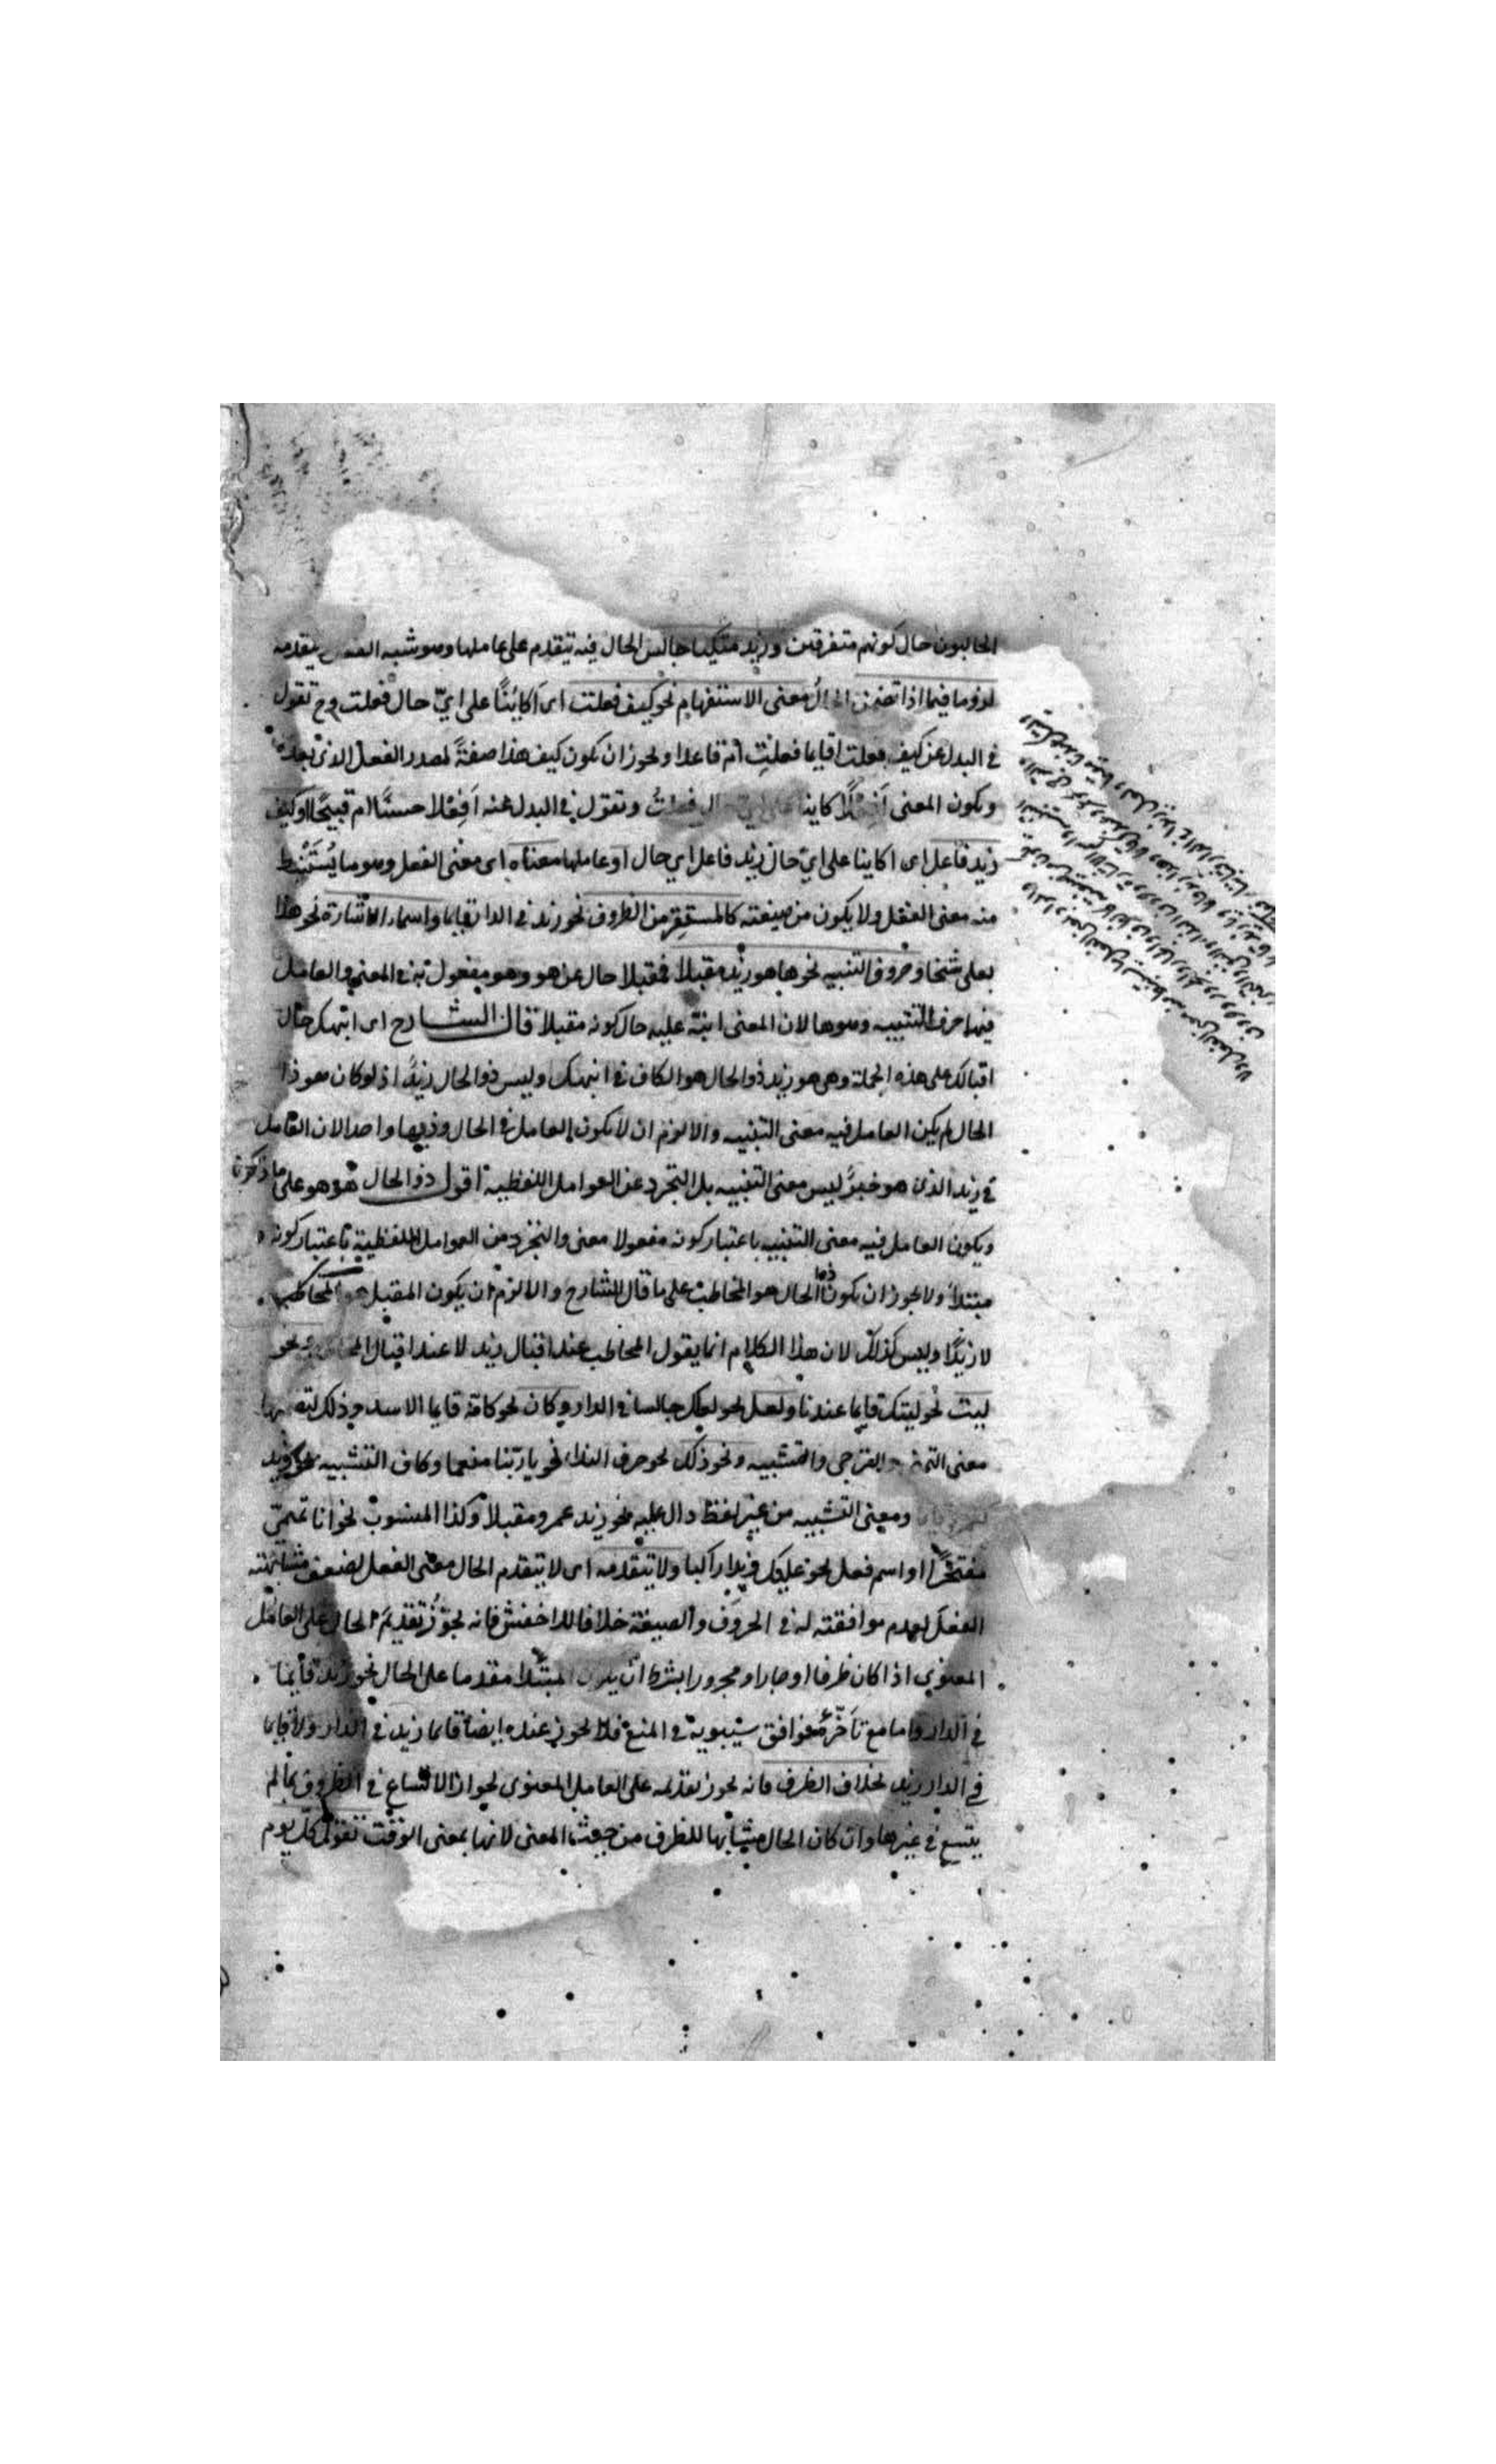 الجالبون حال كونهم متفرقين وزيد متكيا جالس الحال فيه يتقدم على عاملها وهو شبه الفعل يتقدمه
لزوما فيما اذا تضمن الحال معنى الاستفهام نحو كيف فعلت اى اكاينًا على ايّ حال فعلت وح تقول
في البدل عن كيف فعلت اقايما فعلت ام قاعدا ويجوز ان يكون كيف هذا صفةً لمصدر الفعل الذي بعده
ويكون المعنى أفعلًا كاينا على اي حال فعلت وتقول في البدل عنه أفِعْلا حسنًا ام قبيحًا او كيف
زيد فاعل اى اكاينا على ايّ حال زيد فاعل اي حال او عاملها معناه اى معنى الفعل وهو ما يُستَنْبط
منه معنى الفعل ولا يكون من صيغته كالمستقر من الظروف نحو زيد في الدار قايما واسماء الاشارة نحو هذا
بعلى شيخا وحروف التنبيه نحو ها هو زيد مقبلا فمقبلا حال عن هو وهو مفعول به في المعنى والعامل
فيها حرف التنبيه وهو ها لان المعنى انبّه عليه حال كونه مقبلا قال الشارح اى انبهك حال
اقبالك على هذه الجملة وهي هو زيد ذو الحال هو الكاف في انبهك وليس ذو الحال زيدٌ اذ لو كان هو ذا
الحال لم يكن العامل فيه معنى التنبيه والا لزم ان لا يكون العامل في الحال وذيها واحدا لان العامل
في زيد الذي هو خبرٌ ليس معنى التنبيه بل التجرد عن العوامل اللفظية اقول ذو الحال هو هو على ما ذكرنا
ويكون العامل فيه معنى التنبيه باعتبار كونه مفعولا معنى والتجرد من العوامل اللفظية باعتبار كونه
مبتدأ ولا يجوز ان يكون ذا الحال هو المخاطب على ما قال الشارح والا لزم ان يكون المقبل هو المخاطب
لا زيدًا وليس كذلك لان هذا الكلام انما يقول المخاطب عند اقبال زيد لا عند اقبال نحو
ليت نحو ليتك قايما عندنا ولعل نحو لعلك جالسا في الدار وكان نحو كانه قايما الاسد وذلك
معنى التمني والترجي والتشبيه ونحو ذلك نحو حرف النداء نحو يا ربّنا منعما وكاف التشبيه نحو زيد
ومعنى التشبيه من غير لفظ دال عليه نحو زيد عمرو مقبلا وكذا المنسوب نحو انا تميميّ
مفتخرًا او اسم فعل نحو عليك زيدا راكبا ولا يتقدمه اى لا يتقدم الحال معنى الفعل لضعف مشابهته
الفعل لعدم موافقته له في الحروف والصيغة خلافا للاخفش فانه يجوّز تقديم الحال على العامل
المعنوي اذا كان ظرفا او جارا ومجرورا بشرط ان يكون المبتدا مقدما على الحال نحو زيد قايما
في الدار واما مع تأخّره فوافق سيبويه في المنع فلا يجوز عنده ايضا قايما زيد في الدار ولا قايما
في الدار زيد بخلاف الظرف فانه يجوز تقديمه على العامل المعنوي لجواز الاتساع في الظروف بما لم
يتسع في غيرها وان كان الحال مشابها للظرف من حيث المعنى لانها بمعنى الوقت تقول كل يوم